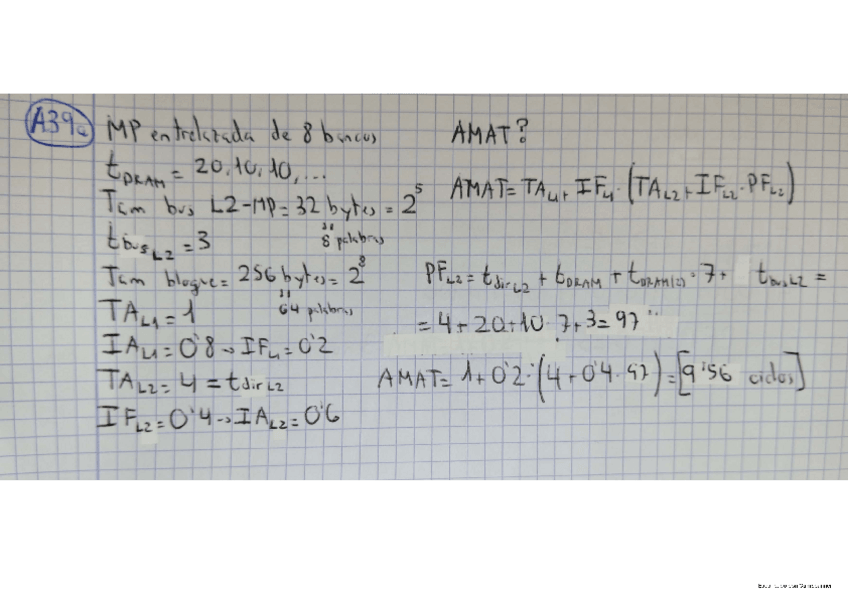 A39a
MP entrelazada de 8 bancos
t_DRAM = 20, 10, 10, ...
Tam bus L2-MP = 32 bytes = 2^5
" 8 palabras
t_bus L2 = 3
Tam bloque = 256 bytes = 2^8
" 64 palabras
TA_L1 = 1
IA_L1 = 0'8 → IF_L1 = 0'2
TA_L2 = 4 = t_dir L2
IF_L2 = 0'4 → IA_L2 = 0'6
AMAT?
AMAT = TA_L1 + IF_L1 · (TA_L2 + IF_L2 · PF_L2)
PF_L2 = t_dir L2 + t_DRAM + t_DRAM(2) · 7 + t_bus L2 =
= 4 + 20 + 10 · 7 + 3 = 97
AMAT = 1 + 0'2 · (4 + 0'4 · 97) = [9'56 ciclos]